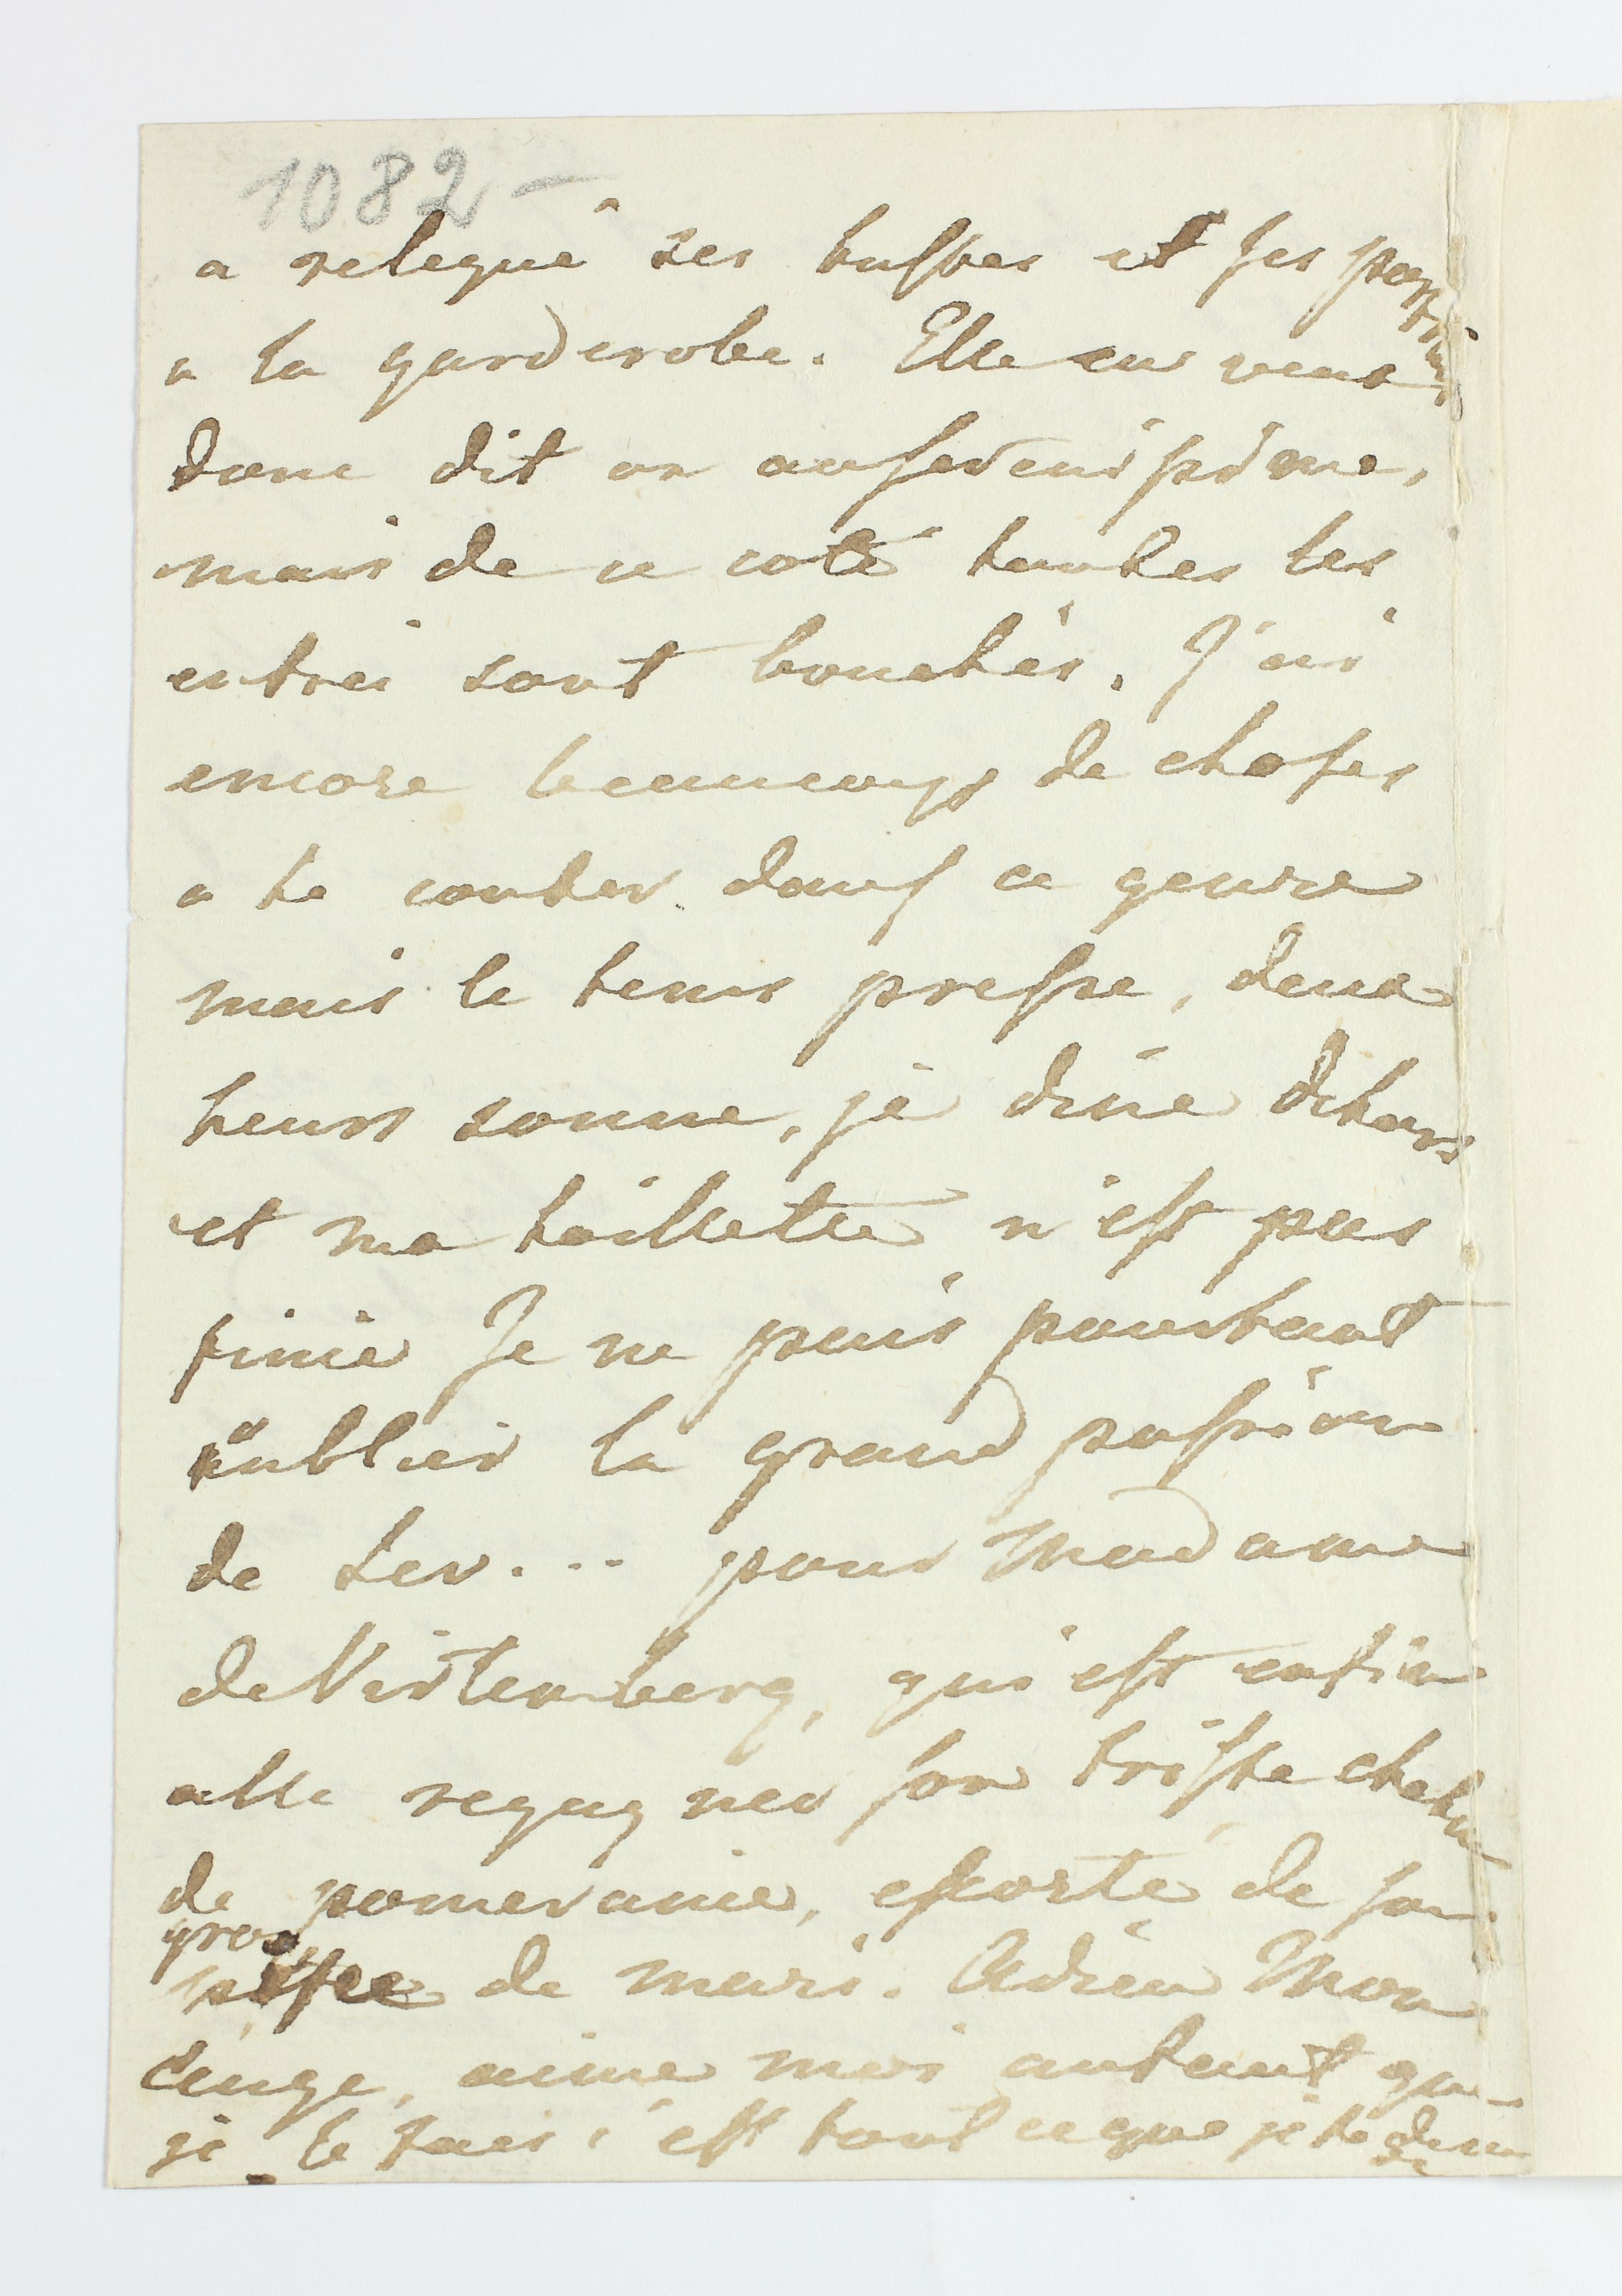 1082 -
a relegué ses bustes et ses papiers
a la garderobe. Elle en veut
donc dit on
mais de ce coté toutes les
entrei sont bouchés. J'ai
encore beaucoup de choses
a te conter dans ce genre
mais le tems presse, deux
heurs sonne, je dine dehors
et ma toillette n'est pas
finie Je ne puis pourtant
oublier la grand passion
de Lev... pour Madame
de Virtemberg, qui est enfin
alle regagner son triste
de pomeranie, escorté de son
gros de mari. Adieu Mon
ange, aime moi autant que
je le fais c'est tout ce que je te